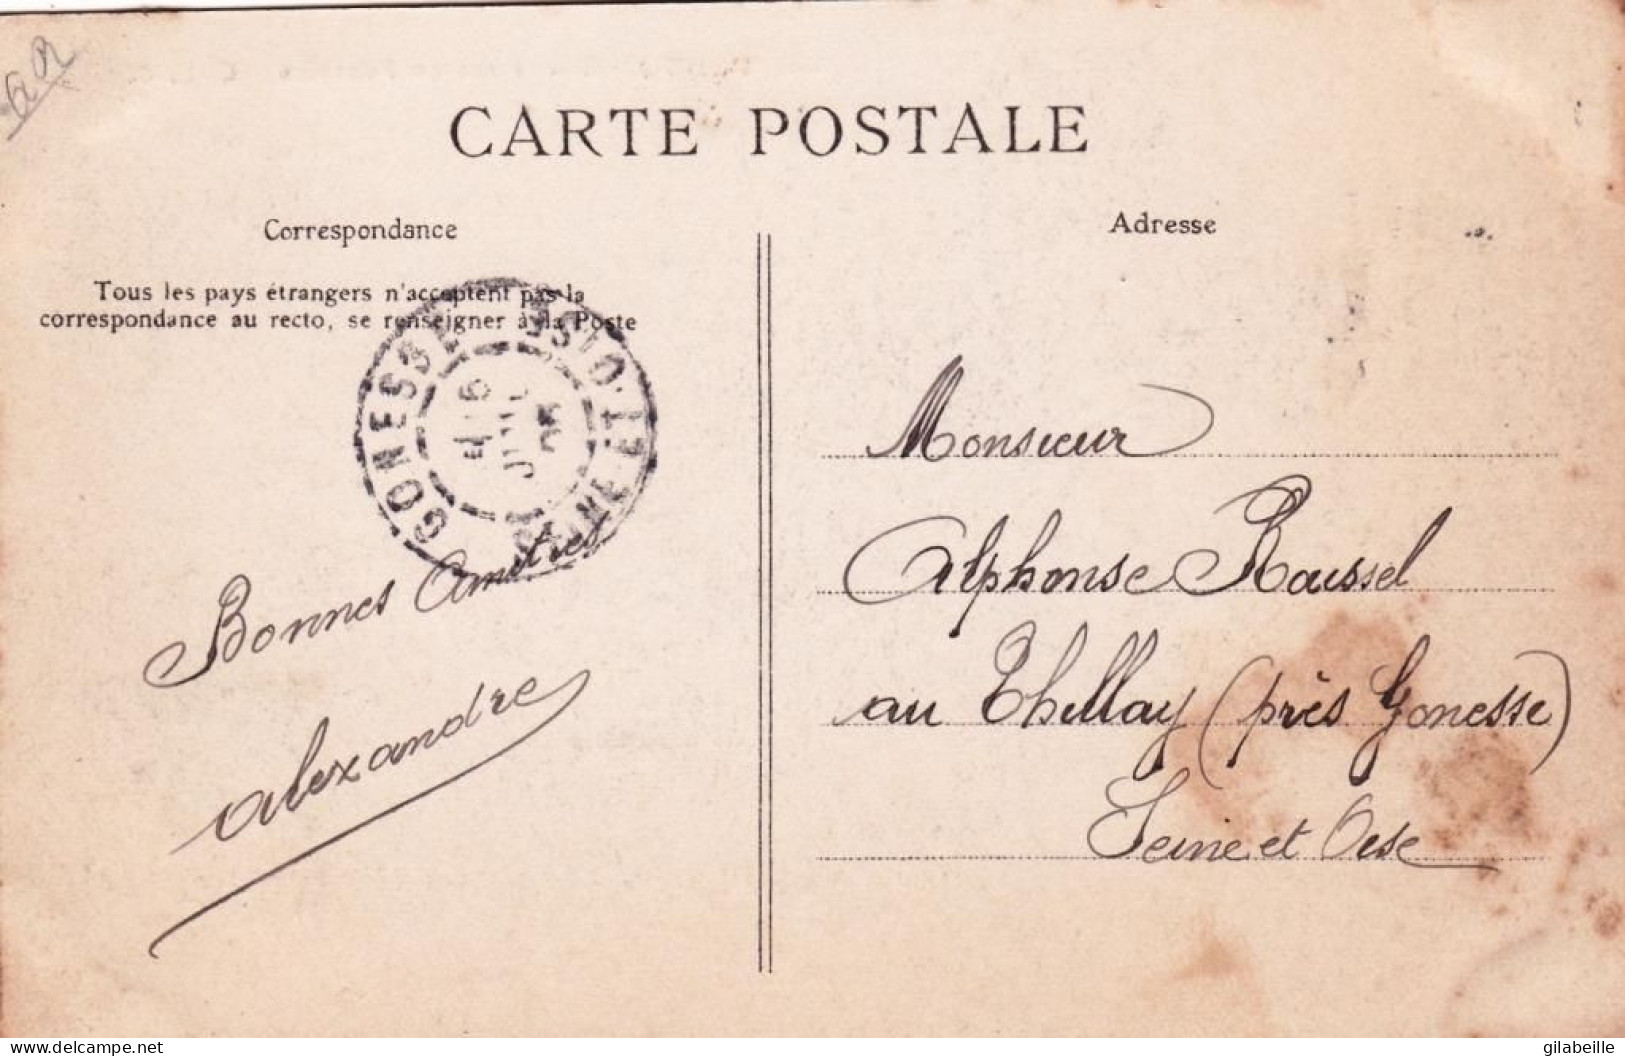 CARTE POSTALE
Correspondance
Tous les pays étrangers n'acceptent pas la
correspondance au recto, se renseigner à la Poste
GONESSE
SEINE-ET-OISE
JUIL
Bonnes Amitiés
Alexandre
Adresse
Monsieur
Alphonse Roussel
au Thillay (près Gonesse)
Seine et Oise
delcampe.net
gilabeille